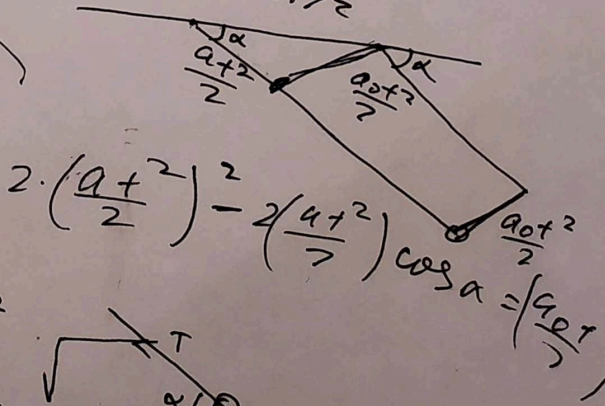 α
at²/2
a₀t²/2
α
a₀t²/2
2·(at²/2)² - 2(at²/2) cos α = (a₀t/2
T
α